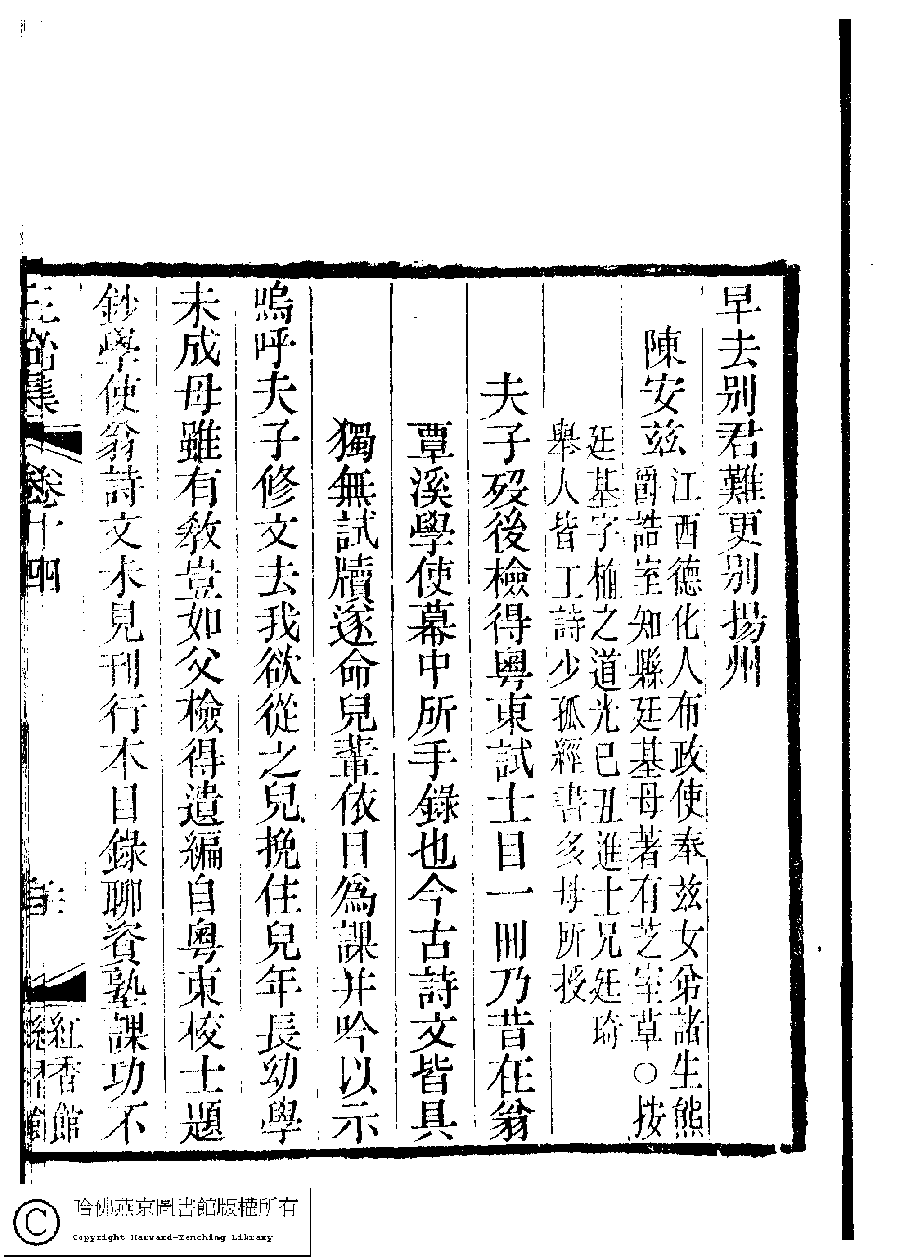 早去別君難更別揚州
陳安茲
江西德化人布政使奉茲女弟諸生熊
爵誥室知縣廷基母著有芝室草○按
廷基字桷之道光己丑進士兄廷琦
舉人皆工詩少孤經書多母所授
夫子歿後檢得粵東試士目一冊乃昔在翁
覃溪學使幕中所手錄也今古詩文皆具
獨無試牘遂命兒輩依日為課幷吟以示
嗚呼夫子修文去我欲從之兒挽住兒年長幼學
未成母雖有敎豈如父檢得遺編自粵東校士題
鈔學使翁詩文未見刊行本目錄聊資塾課功不
卷十四
紅香館
哈佛燕京圖書館版權所有
Copyright Harvard-Yenching Library